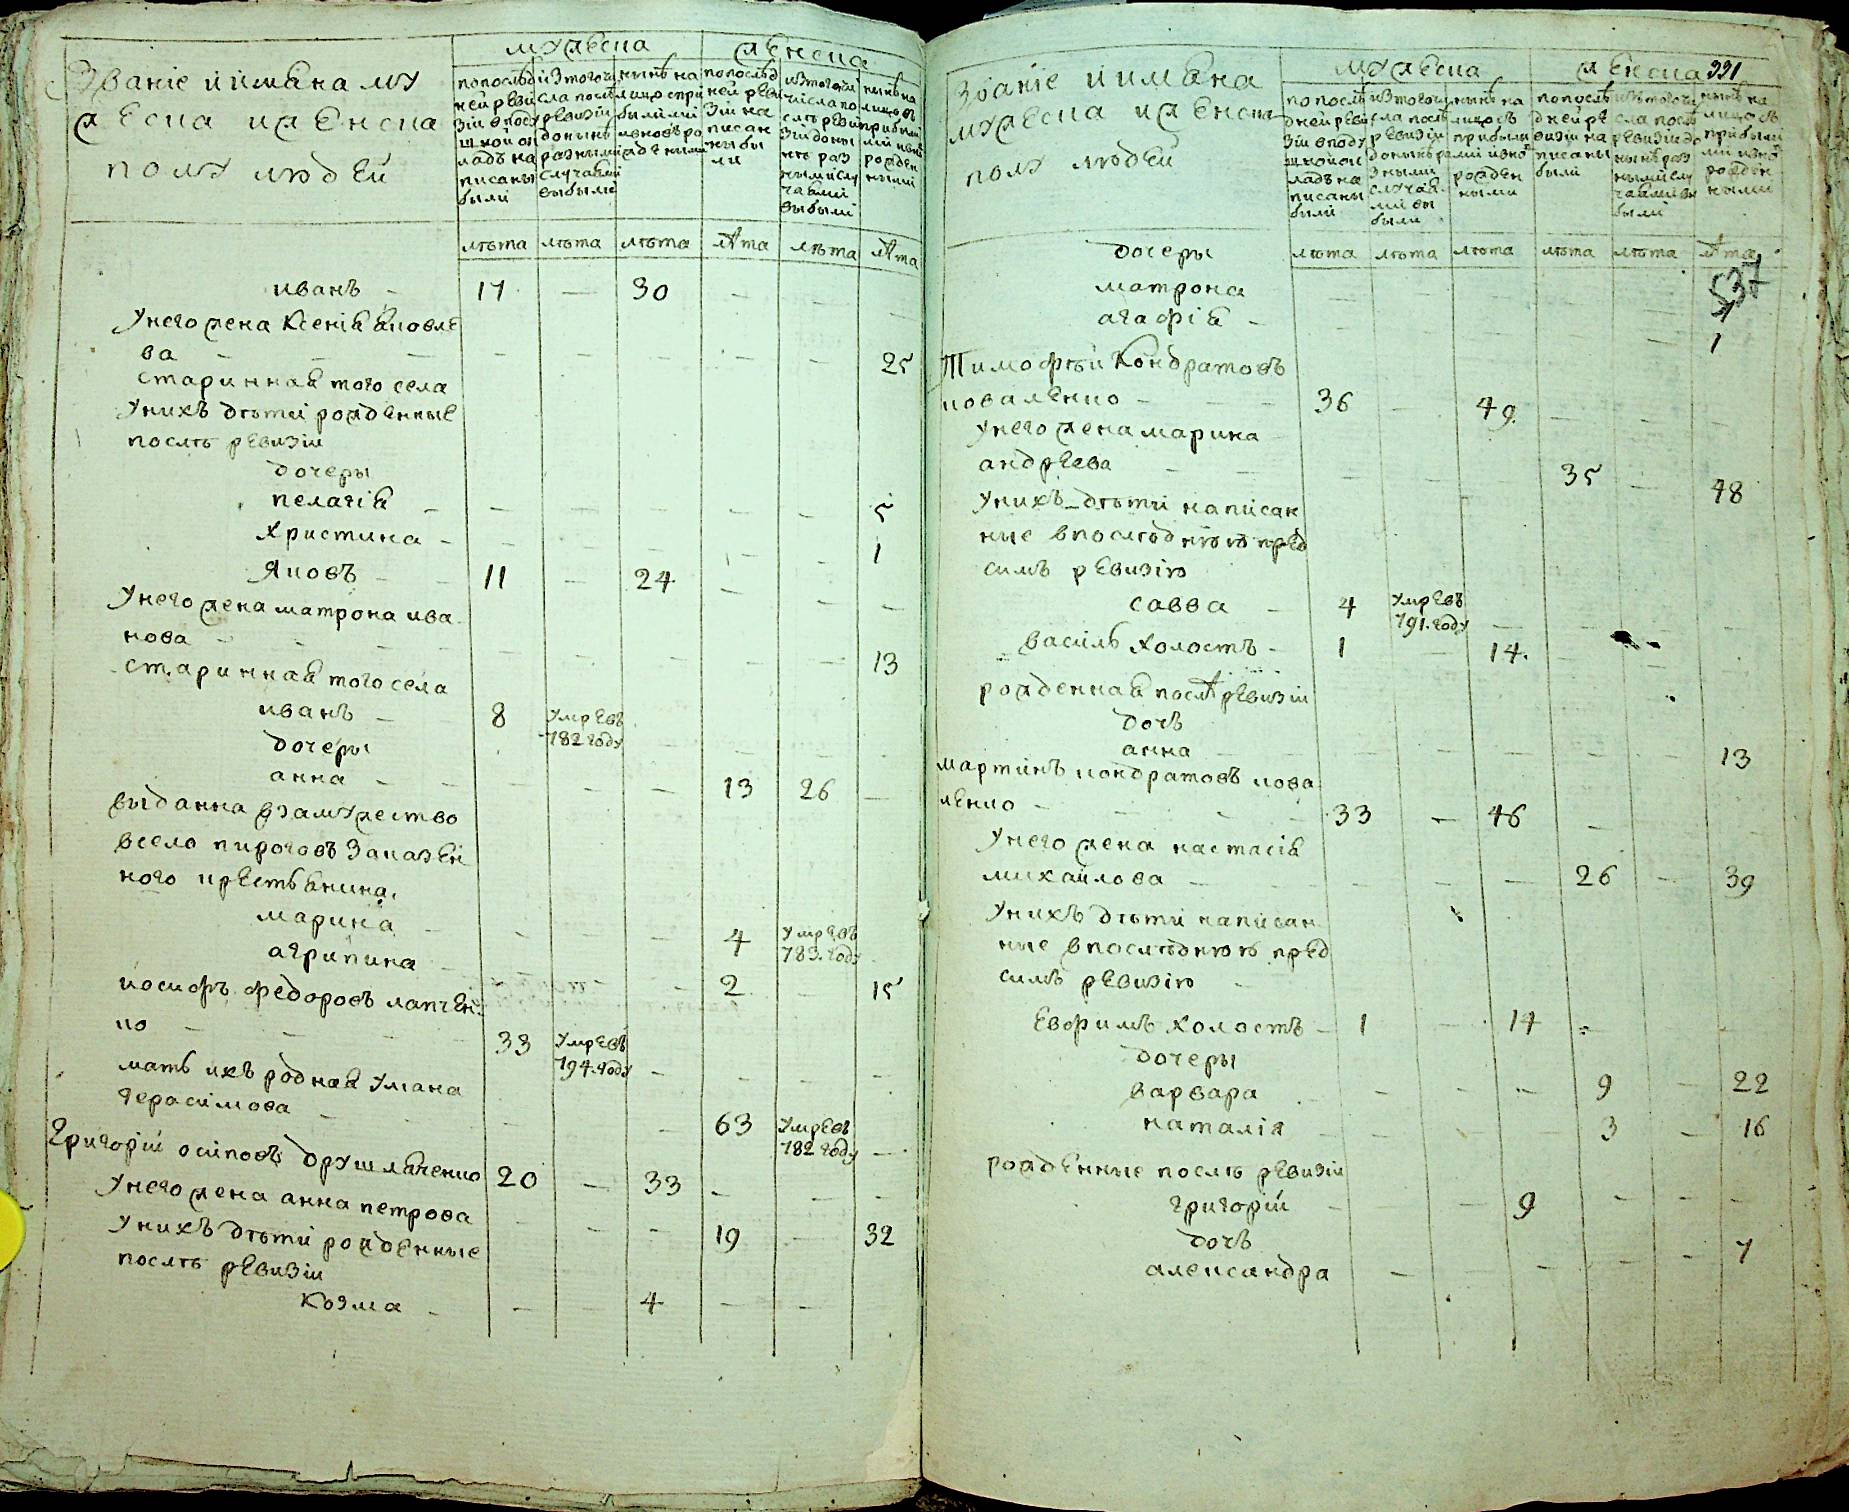 Званіе и имѣна му
жеска и женска
полу людей
мужеска
женска
по послѣд
ней реви
зіи в поду
шной ок
ладъ на
писаны
были
из того чи
сла послѣ
ревизіи
до нынѣ
разными
случаями
выбыли
нынѣ на
лицо с при
былыми
и вновь ро
жденными
по послѣд
ней реви
зіи на
писан
ны бы
ли
из того
числа по
слѣ ревизіи
до ны
нѣ раз
ными слу
чаями
выбыли
нынѣ на
лицо съ
прибылы
ми и вновь
рожден
ными
лѣта лѣта лѣта лѣта лѣта лѣта
иванъ - 17 — 30 - - —
У него жена Ксенія яковле
ва - - — - - - - - 25
старинная того села
У нихъ дѣти рожденные
послѣ ревизіи
дочеры
пелагія - - - - - - 5
христина - - - - - - 1
Яковъ - - 11 — 24. - - -
У него жена матрона ива
нова - - - - - - - - 13
старинная того села
иванъ - - 8 умревъ
782 году - - - -
дочеры
анна - - - - - 13 26 —
выданна в замужество
в село пирогов за казен
ного крестьянина.
марина - - - - 4 умревъ
783. году -
агрипина - - - - 2 - 15
иосифъ федоровъ лапчен
ко - - - 33 умревъ
794. году - - - -
мать ихъ родная улиана
герасимова - - - - 63 умревъ
782 году -
Григорій осіповъ друшляченко 20 - 33 - - -
У него жена анна петрова - - - 19 - 32
У нихъ дѣти рожденные
послѣ ревизіи
козма - - - 4 - -
331
Званіе и имѣна
мужеска и женска
полу людей
мужеска
женска
по послѣ
дней реви
зіи в поду
шной ок
ладъ на
писаны
были
из того чи
сла послѣ
ревизіи
до нынѣ ра
зными
случая
ми вы
были
нынѣ на
лицо съ
прибылы
ми и вновь
рожден
ными
по послѣ
дней ре
визіи на
писаны
были
из того чи
сла послѣ
ревизіи до
нынѣ раз
ными слу
чаями вы
были
нынѣ на
лицо съ
прибылы
ми и вновь
рожден
ными
лѣта лѣта лѣта лѣта лѣта лѣта
537
дочеры
матрона - - - - -
агафія - - - - - - 1
Тимофѣй Кондратовъ
коваленко - - - 36 - 49. - - -
У него жена марина
андреева - - - - - 35 - 48
У нихъ дѣти написан
ные в послѣднюю пред
симъ ревизію
савва - 4 умревъ
791. году - - - -
василь холостъ - 1 - 14. - - -
рожденная послѣ ревизіи
дочь
анна - - - - - - 13
мартинъ кондратовъ кова
ленко - - - 33 - 46 - - -
У него жена настасія
михайлова - - - - - 26 - 39
У нихъ дѣти написан
ные в послѣднюю пред
симъ ревизію -
Ефимъ холостъ - 1 - 14 - - -
дочеры
варвара - - - - 9 - 22
наталія - - - - 3 - 16
рожденные послѣ ревизіи
григорій - - - 9 - - -
дочь
александра - - - - - 7